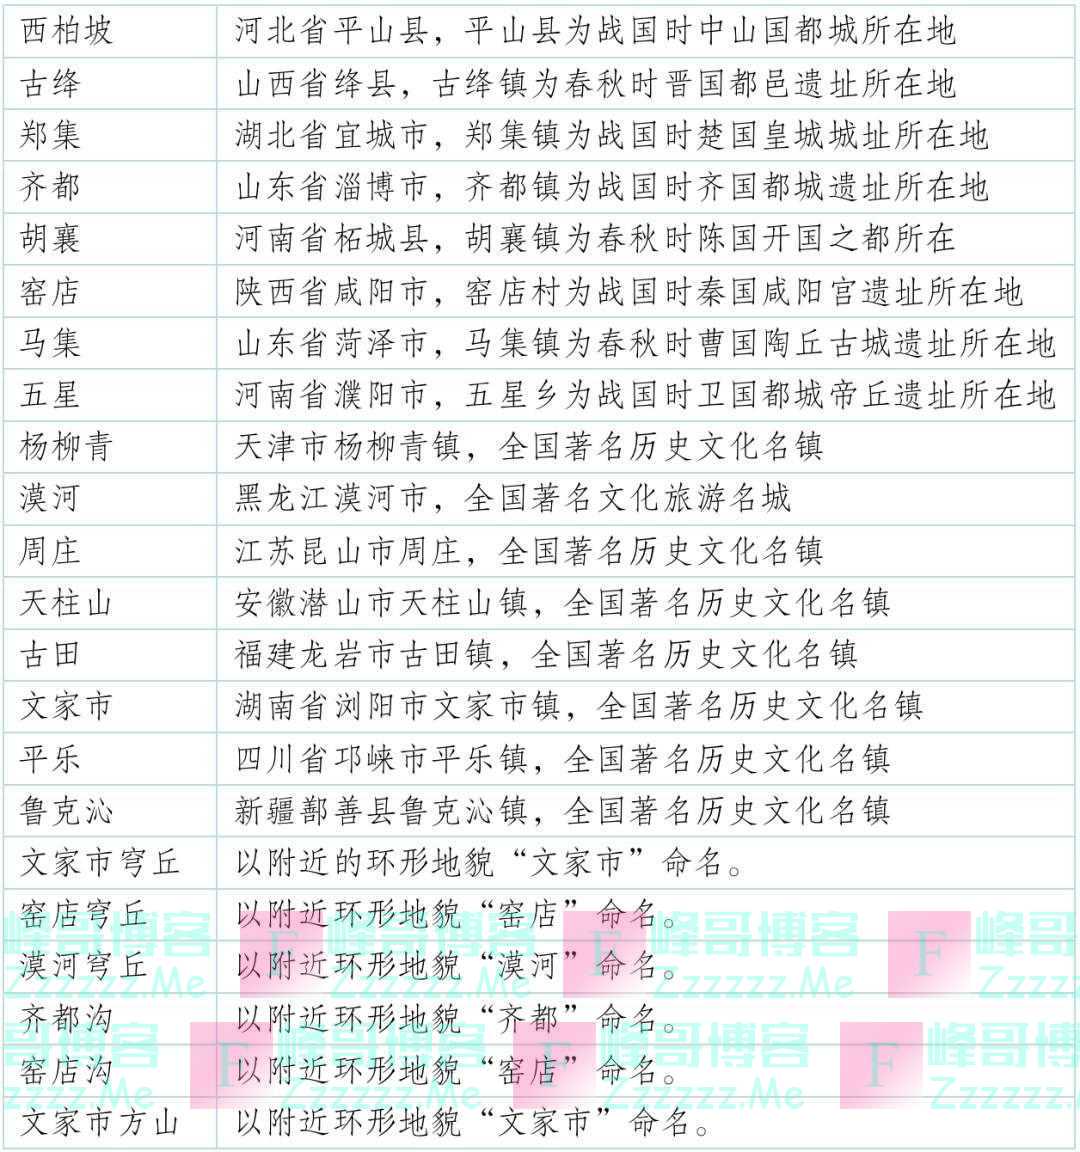 西柏坡 河北省平山县，平山县为战国时中山国都城所在地
古绛 山西省绛县，古绛镇为春秋时晋国都邑遗址所在地
郑集 湖北省宜城市，郑集镇为战国时楚国皇城城址所在地
齐都 山东省淄博市，齐都镇为战国时齐国都城遗址所在地
胡襄 河南省柘城县，胡襄镇为春秋时陈国开国之都所在
窑店 陕西省咸阳市，窑店村为战国时秦国咸阳宫遗址所在地
马集 山东省菏泽市，马集镇为春秋时曹国陶丘古城遗址所在地
五星 河南省濮阳市，五星乡为战国时卫国都城帝丘遗址所在地
杨柳青 天津市杨柳青镇，全国著名历史文化名镇
漠河 黑龙江漠河市，全国著名文化旅游名城
周庄 江苏昆山市周庄，全国著名历史文化名镇
天柱山 安徽潜山市天柱山镇，全国著名历史文化名镇
古田 福建龙岩市古田镇，全国著名历史文化名镇
文家市 湖南省浏阳市文家市镇，全国著名历史文化名镇
平乐 四川省邛崃市平乐镇，全国著名历史文化名镇
鲁克沁 新疆鄯善县鲁克沁镇，全国著名历史文化名镇
文家市穹丘 以附近的环形地貌“文家市”命名。
窑店穹丘 以附近环形地貌“窑店”命名。
漠河穹丘 以附近环形地貌“漠河”命名。
齐都沟 以附近环形地貌“齐都”命名。
窑店沟 以附近环形地貌“窑店”命名。
文家市方山 以附近环形地貌“文家市”命名。
峰哥博客 F 峰哥博客 F 峰哥博客 F 峰哥
Zzzzzz.Me Zzzzzz.Me Zzzzzz.Me Zzzzz
哥博客 F 峰哥博客 F 峰哥博客 F 峰哥博
zz.Me Zzzzzz.Me Zzzzzz.Me Zzzzzz.